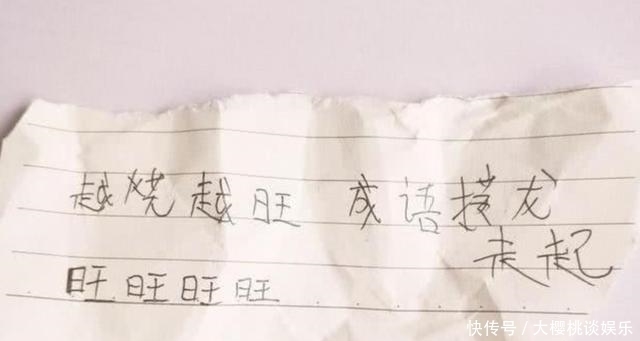 越烧越旺 成语接龙
走起
旺旺旺旺......
快传号/大樱桃谈娱乐